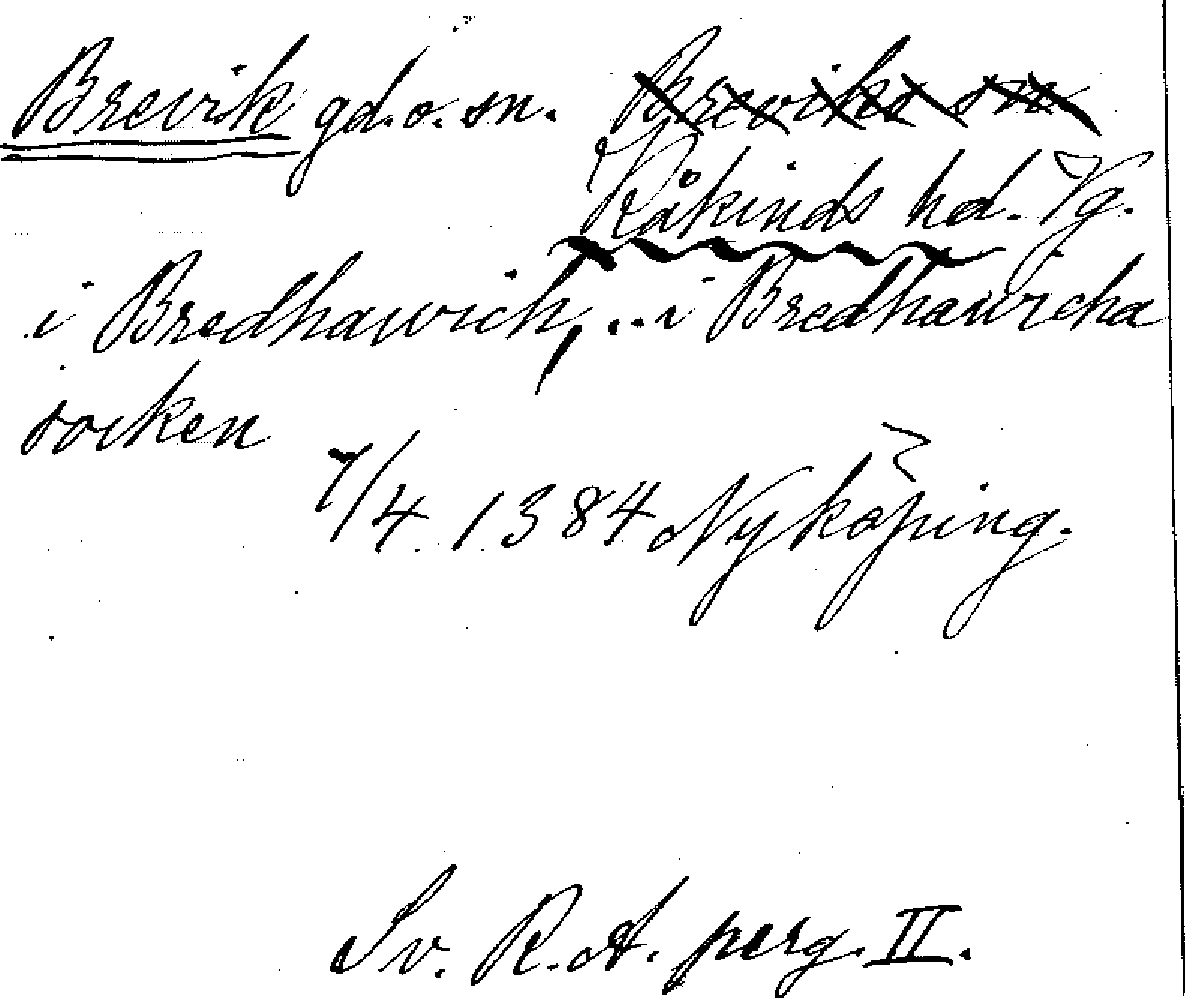 Brevik gd. o. sn. Breviks sn
Kåkinds hd. Vg.
i Bredhawich, ... i Bredhawicha
socken
7/4 1384 Nyköping.
Sv. R.A. perg. II.